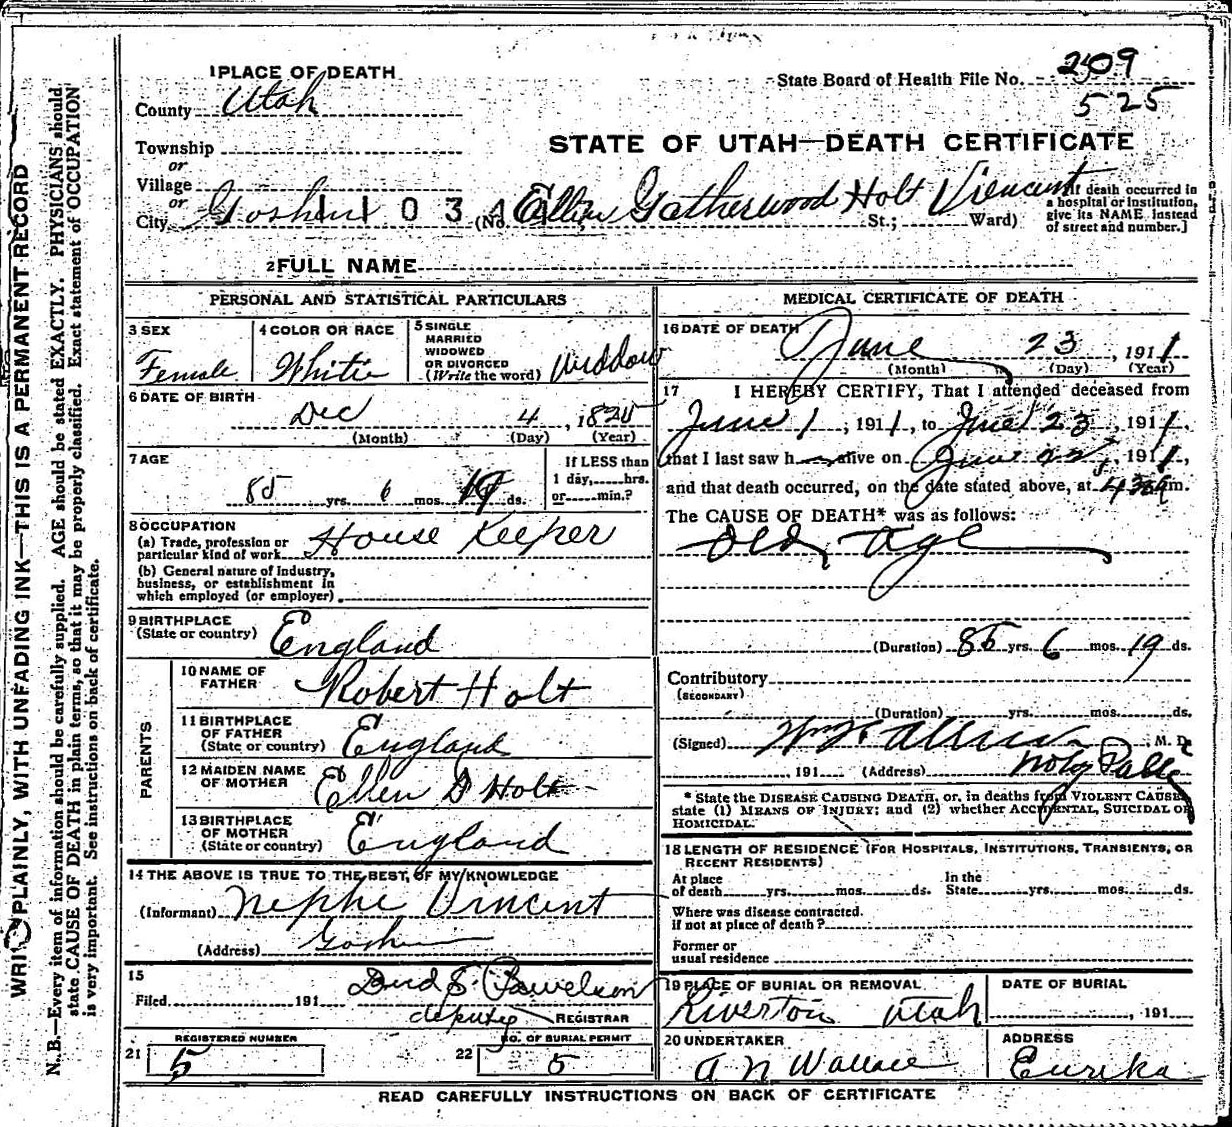 WRITE PLAINLY, WITH UNFADING INK—THIS IS A PERMANENT RECORD
N. B.—Every item of information should be carefully supplied. AGE should be stated EXACTLY. PHYSICIANS should
state CAUSE OF DEATH in plain terms, so that it may be properly classified. Exact statement of OCCUPATION
is very important. See instructions on back of certificate.
1 PLACE OF DEATH
County Utah
State Board of Health File No. 209
525
Township
or
Village
or
City Goshen
STATE OF UTAH—DEATH CERTIFICATE
(No. Ellen Gatherwood Holt Vincent St.; Ward)
[If death occurred in
a hospital or institution,
give its NAME instead
of street and number.]
2 FULL NAME
PERSONAL AND STATISTICAL PARTICULARS
3 SEX
Female
4 COLOR OR RACE
White
5 SINGLE
MARRIED
WIDOWED
OR DIVORCED
(Write the word) Widdow
6 DATE OF BIRTH
Dec 4, 1825
(Month) (Day) (Year)
7 AGE
85 yrs. 6 mos. 19 ds.
If LESS than
1 day, hrs.
or min.?
8 OCCUPATION
(a) Trade, profession or
particular kind of work House Keeper
(b) General nature of industry,
business, or establishment in
which employed (or employer)
9 BIRTHPLACE
(State or country) England
PARENTS
10 NAME OF
FATHER Robert Holt
11 BIRTHPLACE
OF FATHER
(State or country) England
12 MAIDEN NAME
OF MOTHER Ellen G Holt
13 BIRTHPLACE
OF MOTHER
(State or country) England
14 THE ABOVE IS TRUE TO THE BEST OF MY KNOWLEDGE
(Informant) Nephi Vincent
(Address) Goshen
15
Filed 191
deputy REGISTRAR
REGISTERED NUMBER
21 5
NO. OF BURIAL PERMIT
22 5
MEDICAL CERTIFICATE OF DEATH
16 DATE OF DEATH
June 23, 1911
(Month) (Day) (Year)
17 I HEREBY CERTIFY, That I attended deceased from
June 1, 1911, to June 23, 1911,
that I last saw h alive on June 22, 1911,
and that death occurred, on the date stated above, at 430 a m.
The CAUSE OF DEATH* was as follows:
Old Age
(Duration) 85 yrs. 6 mos. 19 ds.
Contributory
(SECONDARY)
(Duration) yrs. mos. ds.
(Signed) , M. D.
191 (Address)
* State the DISEASE CAUSING DEATH, or, in deaths from VIOLENT CAUSES,
state (1) MEANS OF INJURY; and (2) whether ACCIDENTAL, SUICIDAL or
HOMICIDAL.
18 LENGTH OF RESIDENCE (FOR HOSPITALS, INSTITUTIONS, TRANSIENTS, OR
RECENT RESIDENTS)
At place
of death yrs. mos. ds.
In the
State yrs. mos. ds.
Where was disease contracted.
if not at place of death?
Former or
usual residence
19 PLACE OF BURIAL OR REMOVAL
Riverton Utah
DATE OF BURIAL
, 191
20 UNDERTAKER
A N Wallace
ADDRESS
Eureka
READ CAREFULLY INSTRUCTIONS ON BACK OF CERTIFICATE